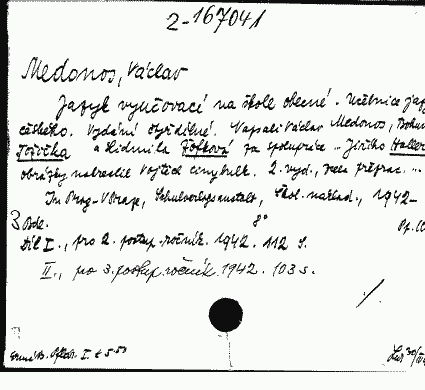 2-167041
Medonos, Václav
Jazyk vyučovací na škole obecné. Učebnice jaz
českého. Vydání čtyřdílné. Napsali Václav Medonos, Bohum
Tožička a Lidmila Zofková za spolupráce ... Jiřího Haller
obrázky nakreslil Vojtěch Cinybulk. 2. vyd.,
In Prag - V Praze, Schulverlagsanstalt, Škol. naklad., 1942-
3 Bde. 8°
Díl I., pro 2. postup. ročník. 1942. 112 S.
II., pro 3. postup. ročník. 1942. 103 s.